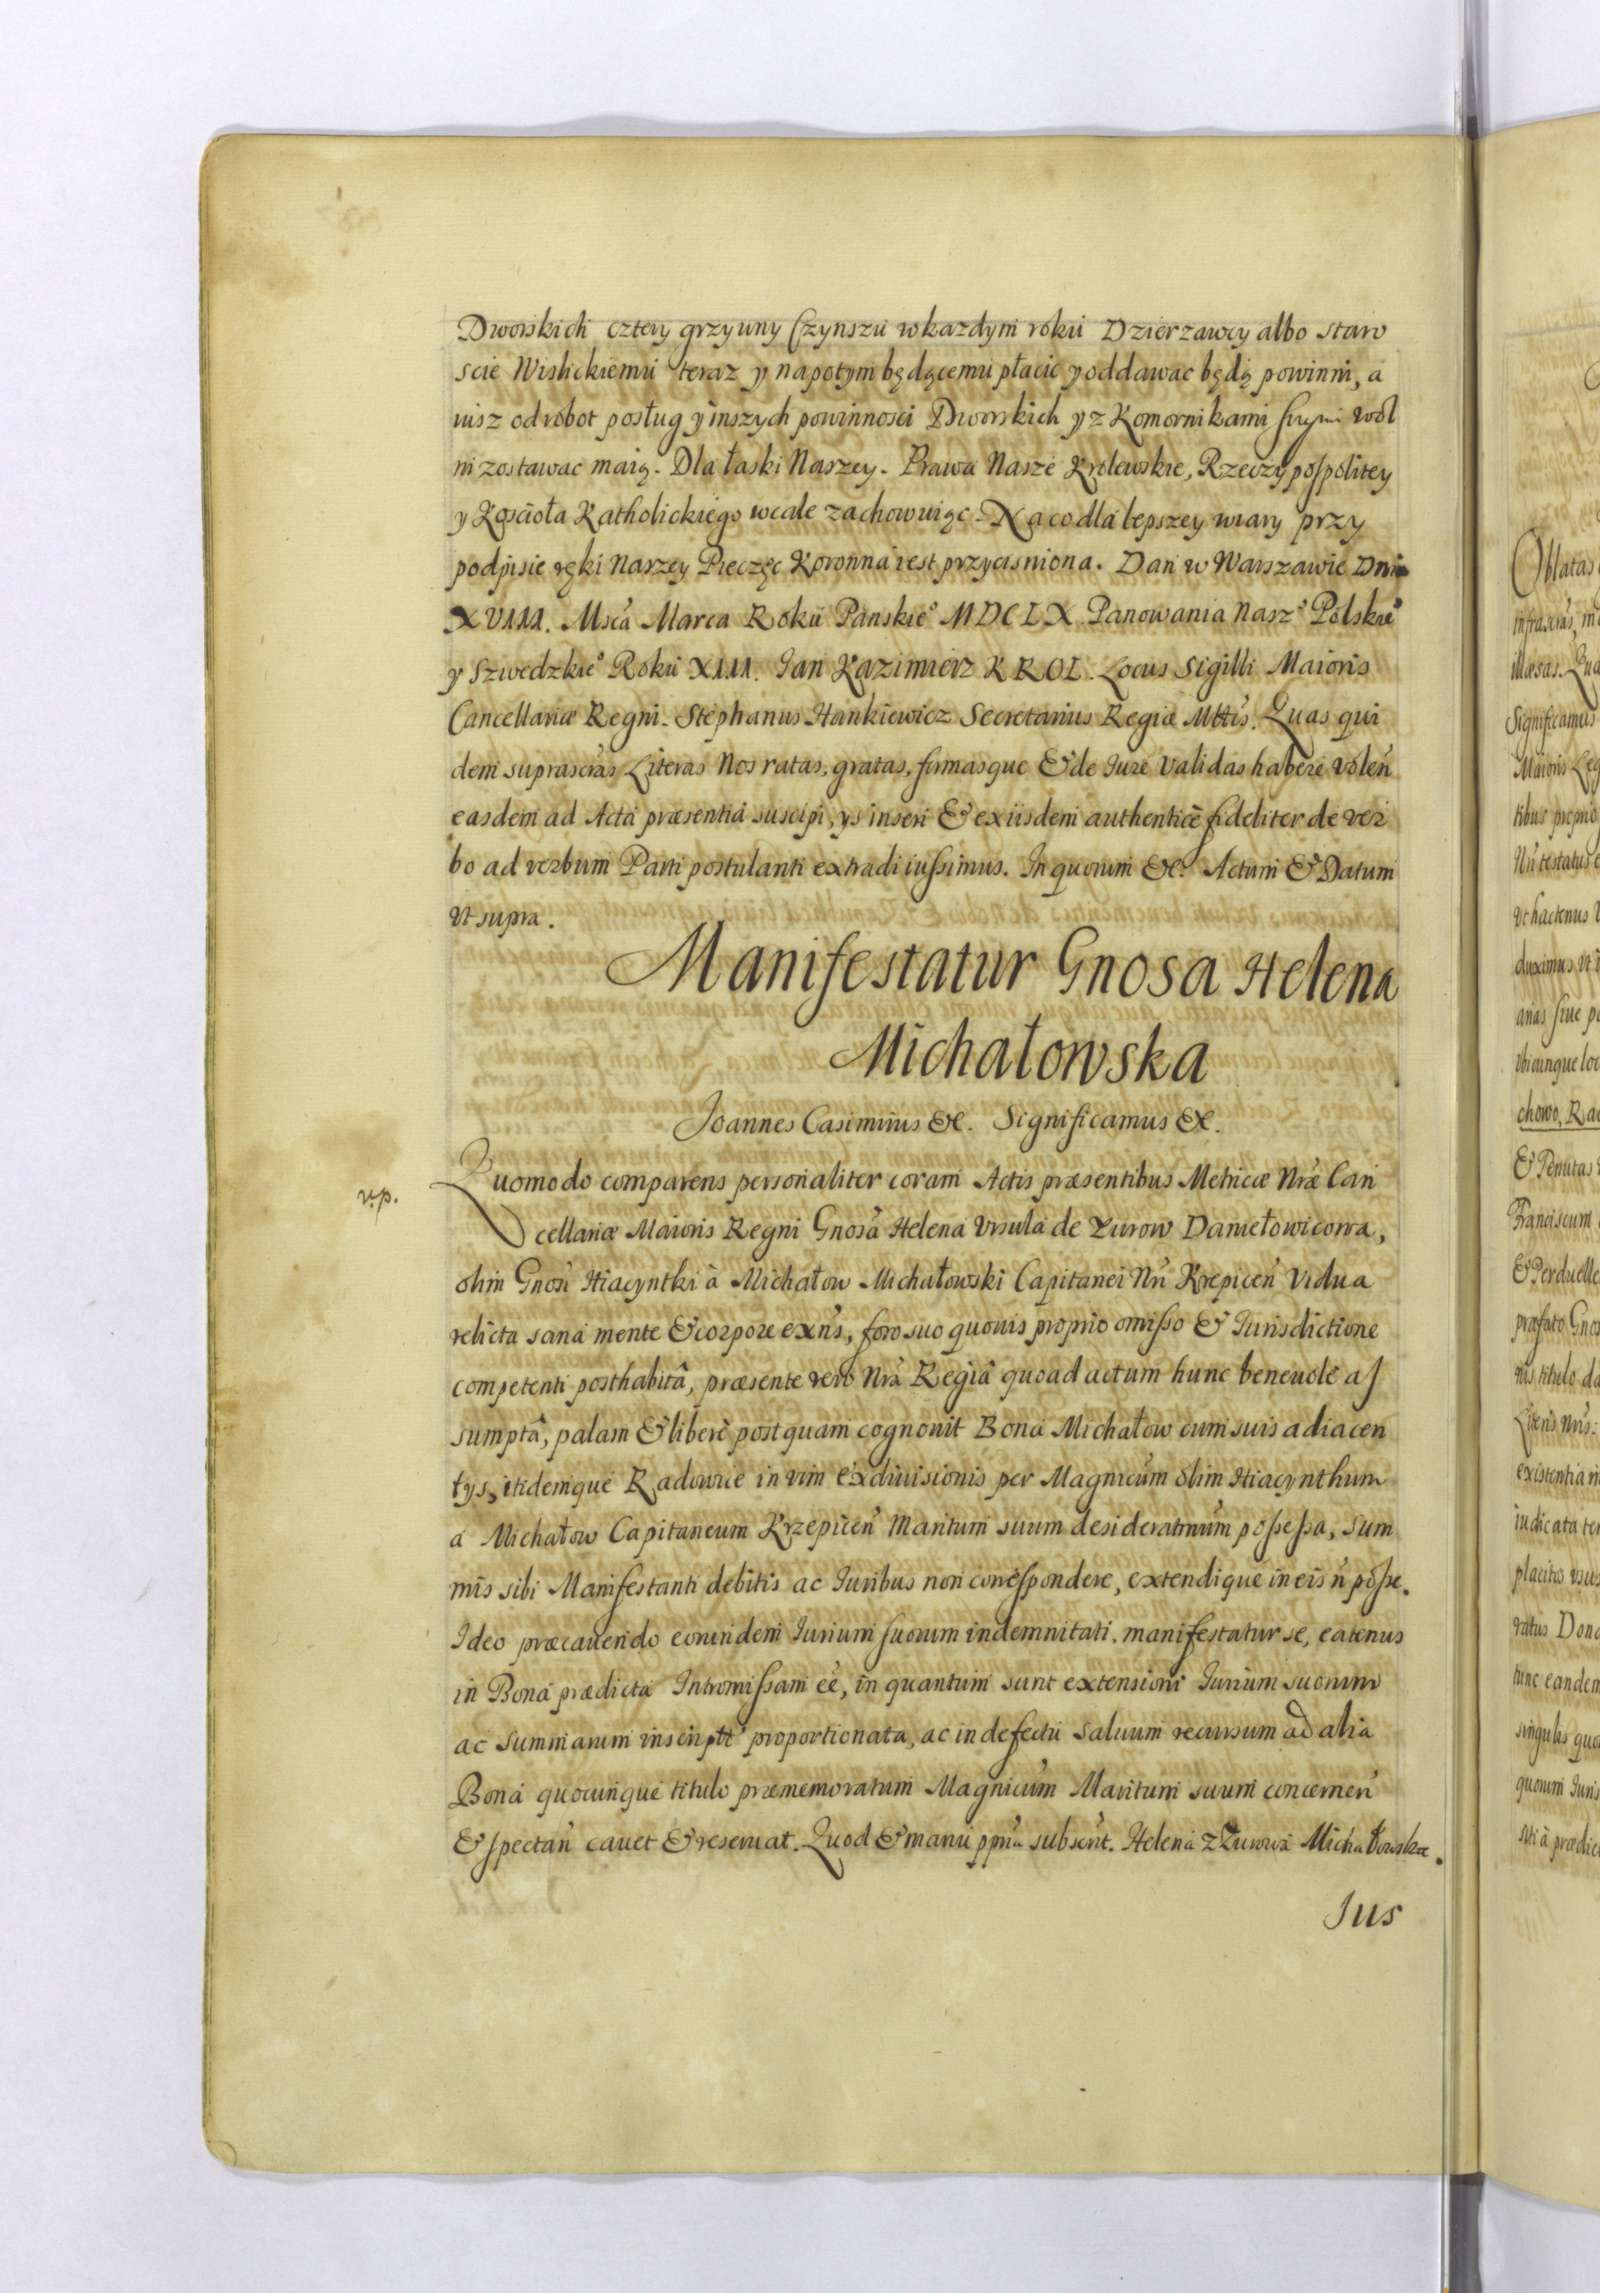 Dworskich cztery grzywny Czynszu wkazdym roku Dzierzawcy albo staro
scie Wislickiemu teraz y napotym będącemu płacic y oddawac będą powinni, a
iusz od robot posług y inszych powinnosci Dworskich y z Komornikami swymi wol
ni zostawac maią. Dla łaski Naszey. Prawa Nasze Krolewskie, Rzeczypospolitey
y Koscioła Katholickiego wcale zachowuiąc. Na co dla lepszey wiary przy
podpisie ręki Naszey Pieczęc Koronna iest przycisniona. Dan w Warszawie Dnia
XVIII. Msca Marca Roku Panskieo MDCLX Panowania Naszo Polskieo
y Szwedzkieo Roku XIII. Jan Kazimierz KROL. Locus Sigilli Maioris
Cancellariæ Regni. Stephanus Hankiewicz Secretarius Regiæ Mttis. Quas qui
dem suprascras Literas Nos ratas, gratas, firmasque & de Iure validas habere volen
easdem ad Acta præsentia suscipi, ys inseri & ex iisdem authenticè fideliter de ver
bo ad verbum Parti postulanti extradi iussimus. In quorum &c. Actum & Datum
vt supra.
Manifestatur Gnosa Helena
Michałowska
Joannes Casimirus &c. Significamus &c.
v.p.
Quomodo comparens personaliter coram Actis præsentibus Metricæ Nræ Can
cellariæ Maioris Regni Gnosa Helena Vrsula de Zurow Daniełowicowa,
olim Gnosi Hiacynthi à Michałow Michałowski Capitanei Nri Krzepicen Vidua
relicta sana mente & corpore exns, foro suo quouis proprio omisso & Iurisdictione
competenti posthabitâ, præsente vero Nrâ Regiâ quoad actum hunc beneuolè as
sumptâ, palam & liberè postquam cognouit Bona Michałow cum suis adiacen
tys, itidemque Radowie in vim exdiuisionis per Magnicum olim Hiacynthum
a Michałow Capitaneum Krzepicen Maritum suum desideratmum possessa, sum
mis sibi Manifestanti debitis ac Iuribus non correspondere, extendique in eis n posse.
Ideo præcauendo eorundem Iurium suorum indemnitati, manifestatur se, eatenus
in Bona prædicta Intromissam eê, in quantum sunt extensioni Iurium suorum
ac summarum inscriptt proportionata, ac in defectu saluum recursum ad alia
Bona quocunque titulo præmemoratum Magnicum Maritum suum concernen
& spectan cauet & reseruat. Quod & manu ppria subscrit. Helena z Zurowa Michałowska.
Ius